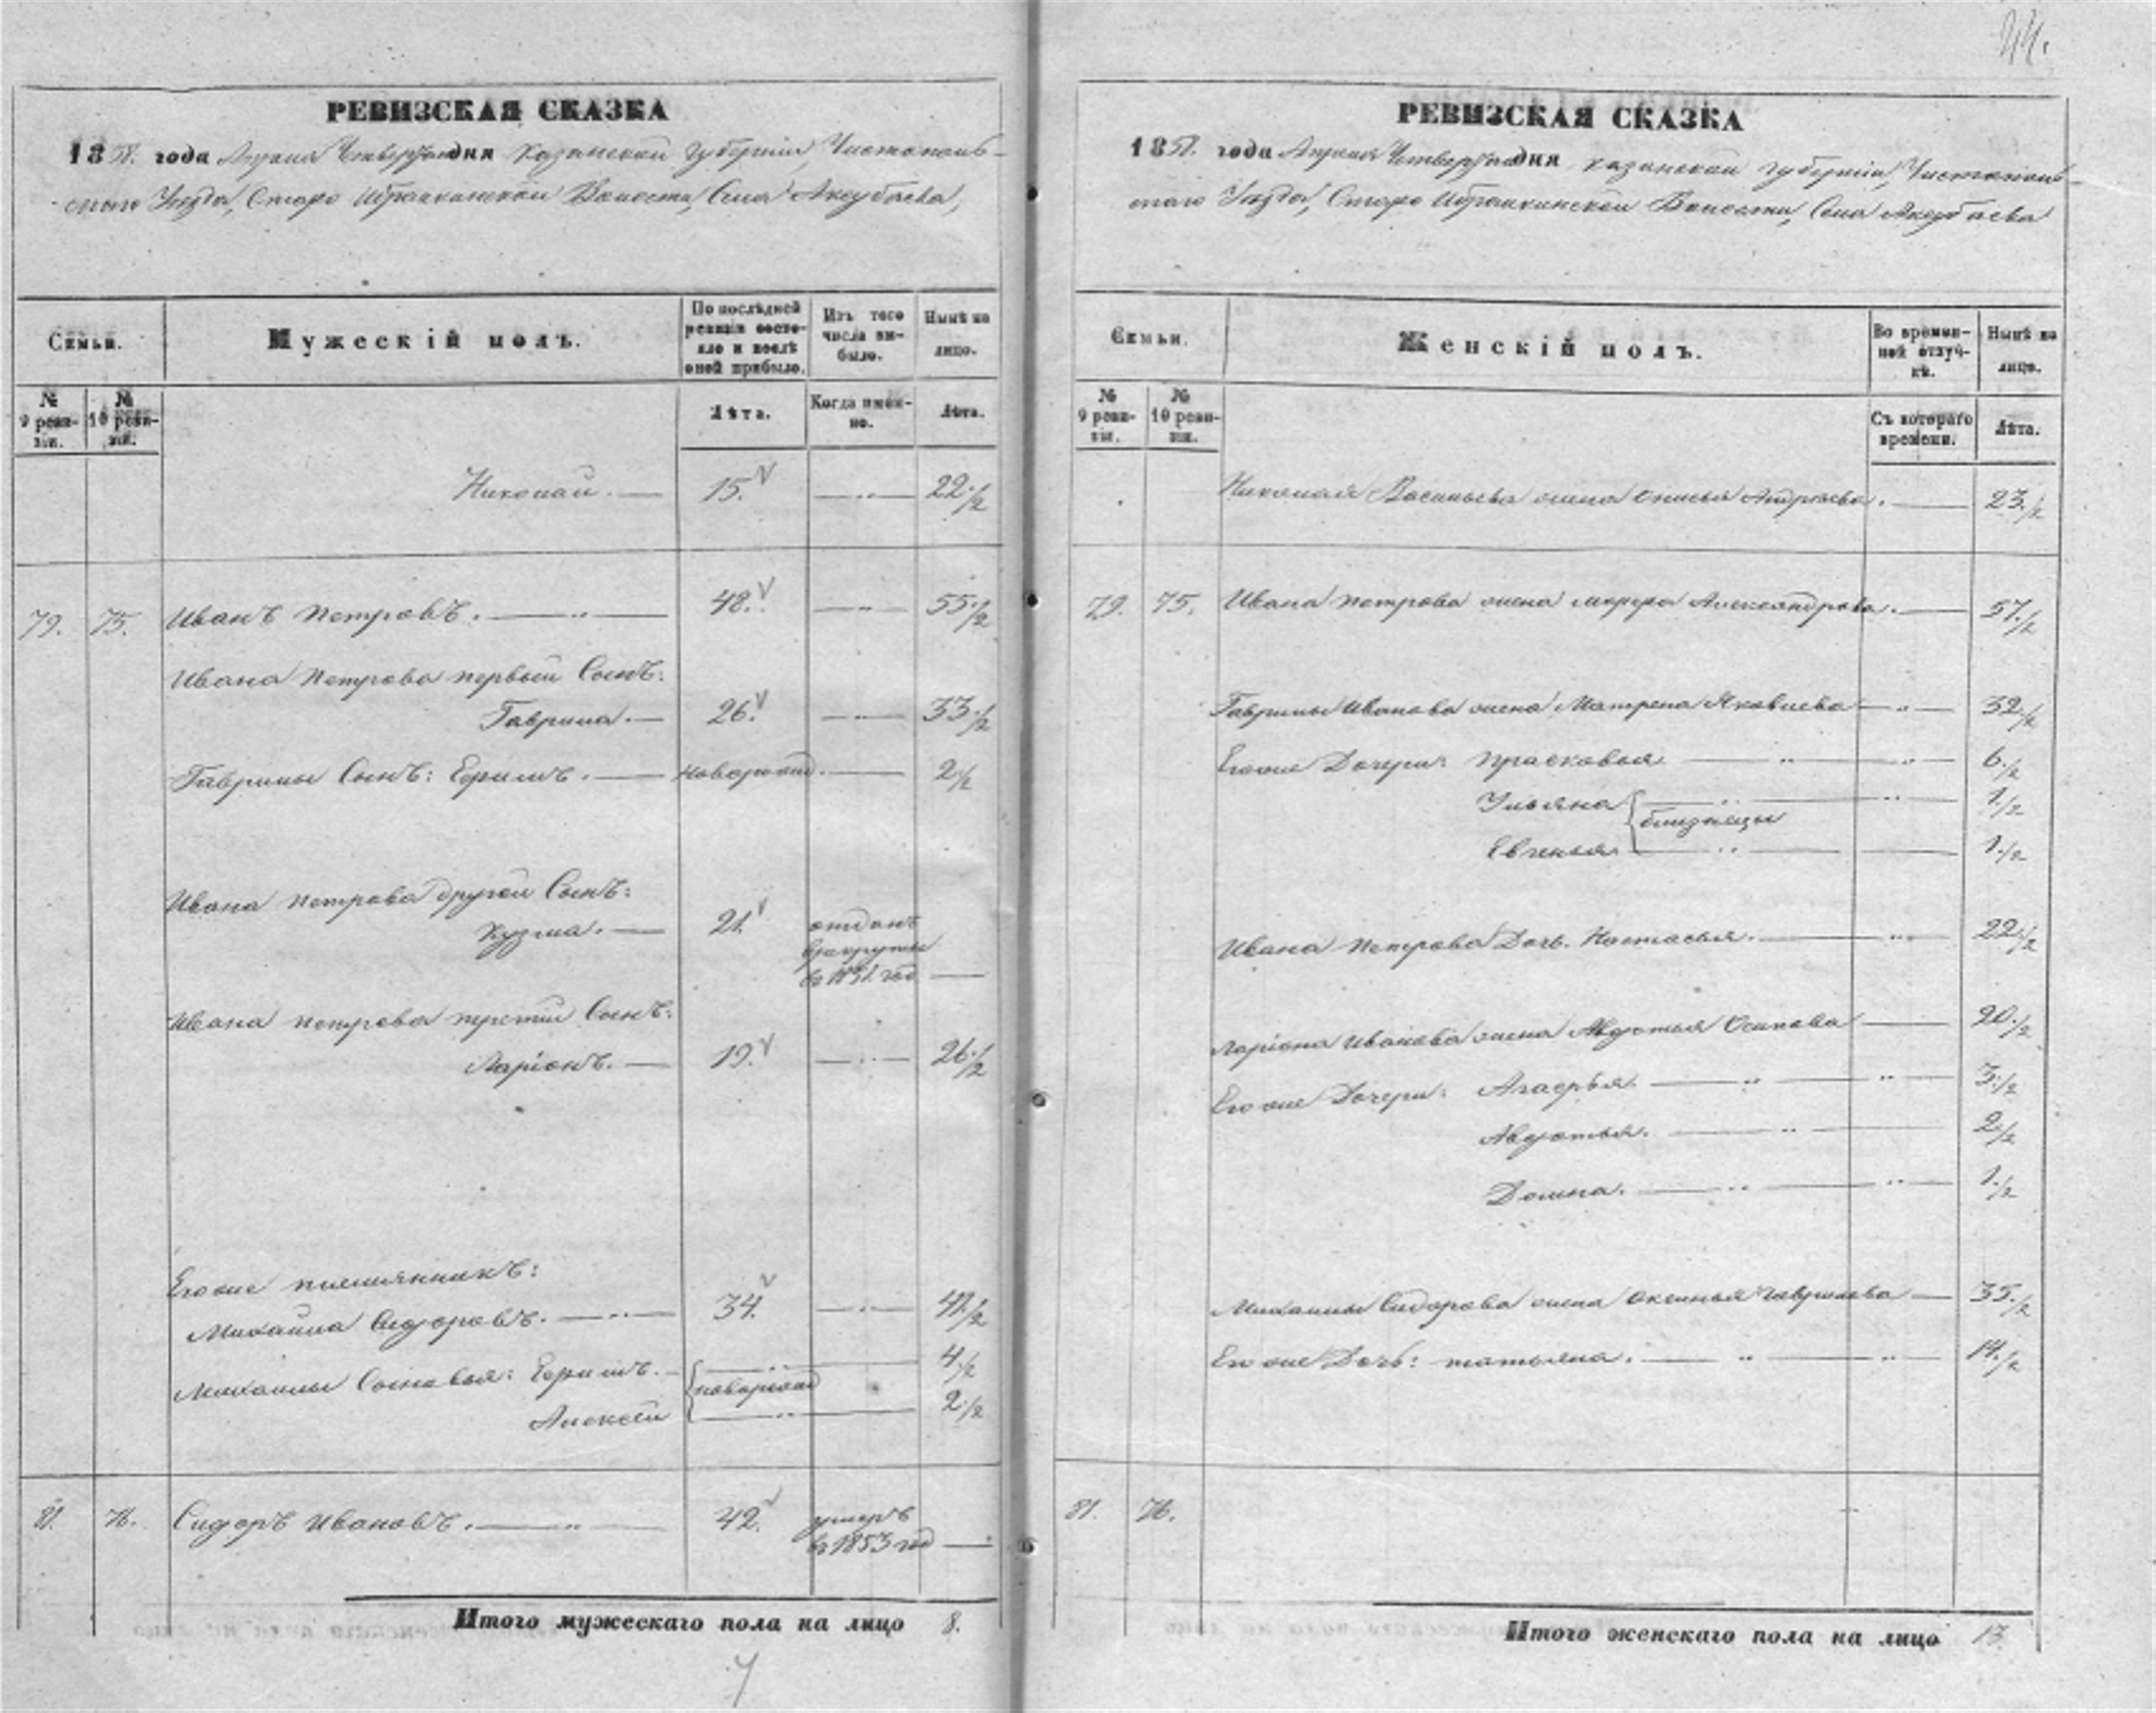 44.
РЕВИЗСКАЯ СКАЗКА
1858. года Апреля Четвертаго дня Казанской губернiи, Чистополь-
скаго Уезда, Старо Ибрайкинской Волости, Села Аксубаева,
Семьи.
Мужескiй полъ.
По послѣдней ревизiи состояло и послѣ оной прибыло.
Изъ того числа выбыло.
Нынѣ на лицо.
№ 9 ревизiи.
№ 10 ревизiи.
Лѣта.
Когда именно.
Лѣта.
Николай. 15. 22 1/2
79. 75. Иванъ Петровъ. 48. 55 1/2
Ивана Петрова первый Сынъ:
Гаврила. 26. 33 1/2
Гаврилы Сынъ: Ефимъ. новорожд. 2 1/2
Ивана Петрова другой Сынъ:
Кузма. 21. отданъ
в рекруты
в 1851 год
Ивана Петрова третiй Сынъ:
Ларiонъ. 19. 26 1/2
Его же племянникъ:
Михайла Сидоровъ. 34. 41 1/2
Михайлы Сыновья: Ефимъ. 4 1/2
новорожд
Алексей 2 1/2
81. 76. Сидоръ Ивановъ. 42. умеръ
в 1853 год
Итого мужескаго пола на лицо 8.
7
РЕВИЗСКАЯ СКАЗКА
1858. года Апреля Четвертаго дня Казанской губернiи, Чистополь-
скаго Уезда, Старо Ибрайкинской Волости, Села Аксубаева
Семьи.
Женскiй полъ.
Во временной отлучкѣ.
Нынѣ на лицо.
№ 9 ревизiи.
№ 10 ревизiи.
Съ котораго времени.
Лѣта.
Николая Васильева жена Анисья Андреева. 23 1/2
79. 75. Ивана Петрова жена Марфа Александрова. 57 1/2
Гаврилы Иванова жена Матрена Яковлева 32 1/2
Его же Дочери: Прасковья. 6 1/2
Ульяна 1 1/2
близнецы
Евгенья 1 1/2
Ивана Петрова Дочь. Настасья. 22 1/2
Ларiона Иванова жена Авдотья Осипова 20 1/2
Его же Дочери: Агафья. 3 1/2
Авдотья. 2 1/2
Домна. 1 1/2
Михайлы Сидорова жена Аксинья Гаврилова 35 1/2
Его же Дочь: Татьяна. 14 1/2
81. 76.
Итого женскаго пола на лицо 13